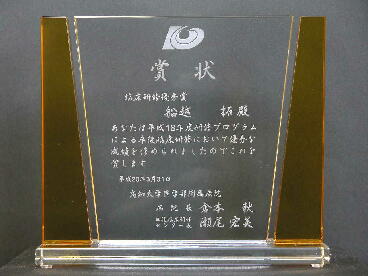 賞状
臨床研修優秀賞
船越 拓殿
あなたは平成18年度研修プログラム
による卒後臨床研修において優秀な
成績を修められましたのでこれを
賞します
平成20年3月31日
高知大学医学部附属病院
病院長 倉本 秋
センター長 瀬尾宏美